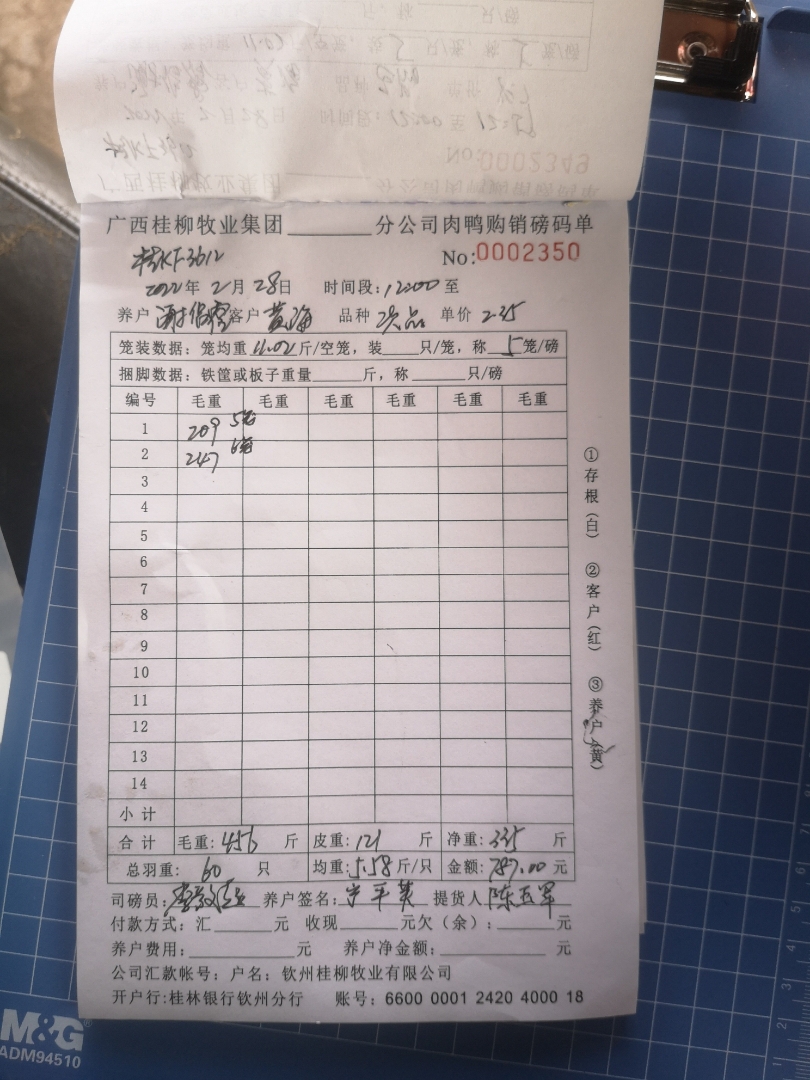 No:0002349
广西桂柳牧业集团______分公司肉鸭购销磅码单
No:0002350
2022年2月28日 时间段:12:00至
养户 客户黄海 品种次品 单价2.35
笼装数据:笼均重11.02斤/空笼,装___只/笼,称5笼/磅
捆脚数据:铁筐或板子重量____斤,称____只/磅
编号 毛重 毛重 毛重 毛重 毛重 毛重
1 209 5笼
2 247 6笼
3
4
5
6
7
8
9
10
11
12
13
14
小计
合计 毛重:456 斤 皮重:121 斤 净重:335 斤
总羽重:60 只 均重:5.58斤/只 金额:787.00元
司磅员: 养户签名: 提货人陈玉军
付款方式:汇____元 收现____元欠(余):____元
养户费用:____元 养户净金额:____元
公司汇款帐号:户名:钦州桂柳牧业有限公司
开户行:桂林银行钦州分行 账号:6600 0001 2420 4000 18
①存根(白) ②客户(红) ③养户(黄)
M&G
ADM94510